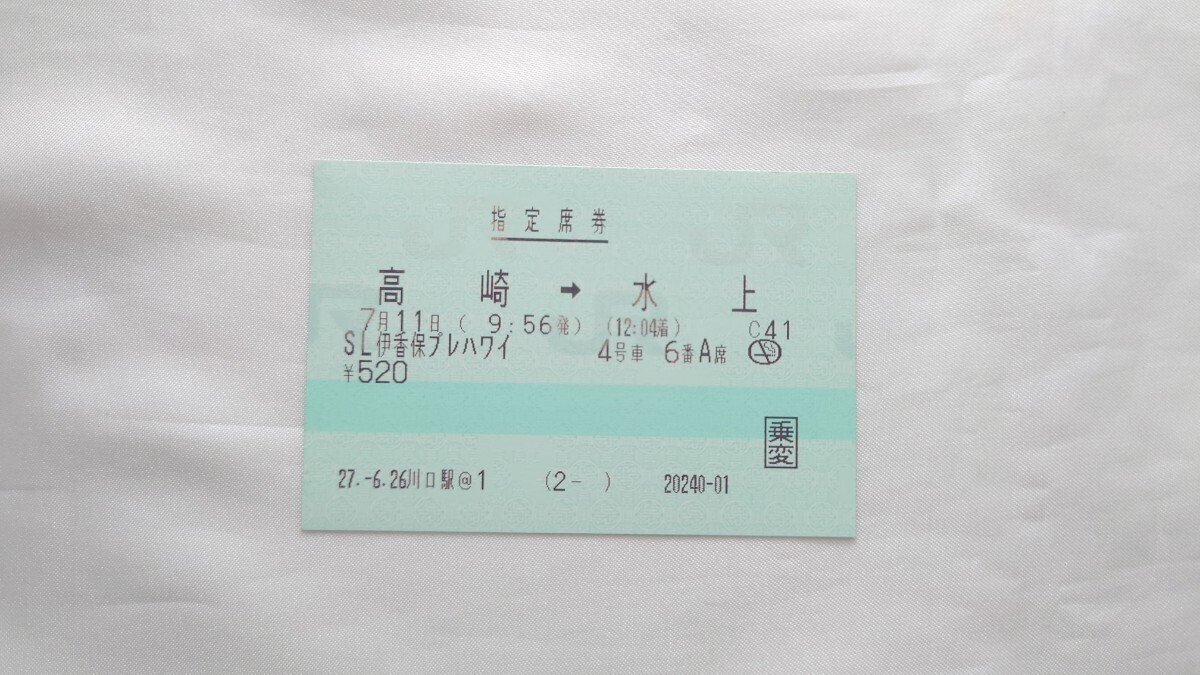 指定席券
高崎 → 水上
7月11日( 9:56発) (12:04着) C41
SL伊香保プレハワイ 4号車 6番A席
¥520
乗変
27.-6.26川口駅@1 (2- ) 20240-01